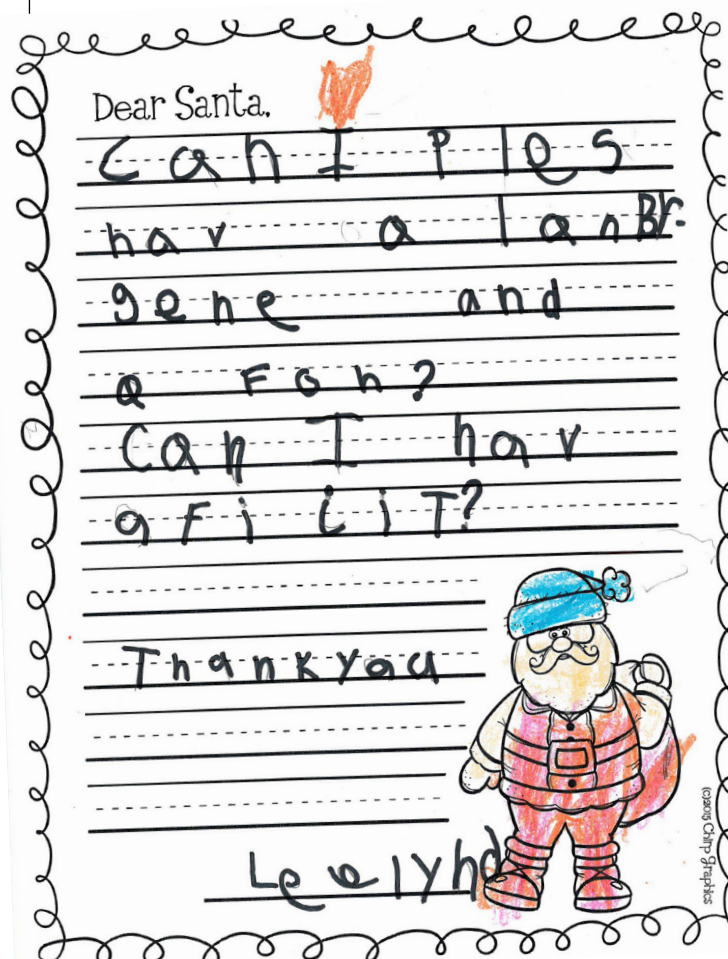 Dear Santa,
can I ples
hav a lanBr-
gene and
a Fon?
Can I hav
a Fi iiT?
Thankyou
Leelynd
(c)2015 Chirp Graphics